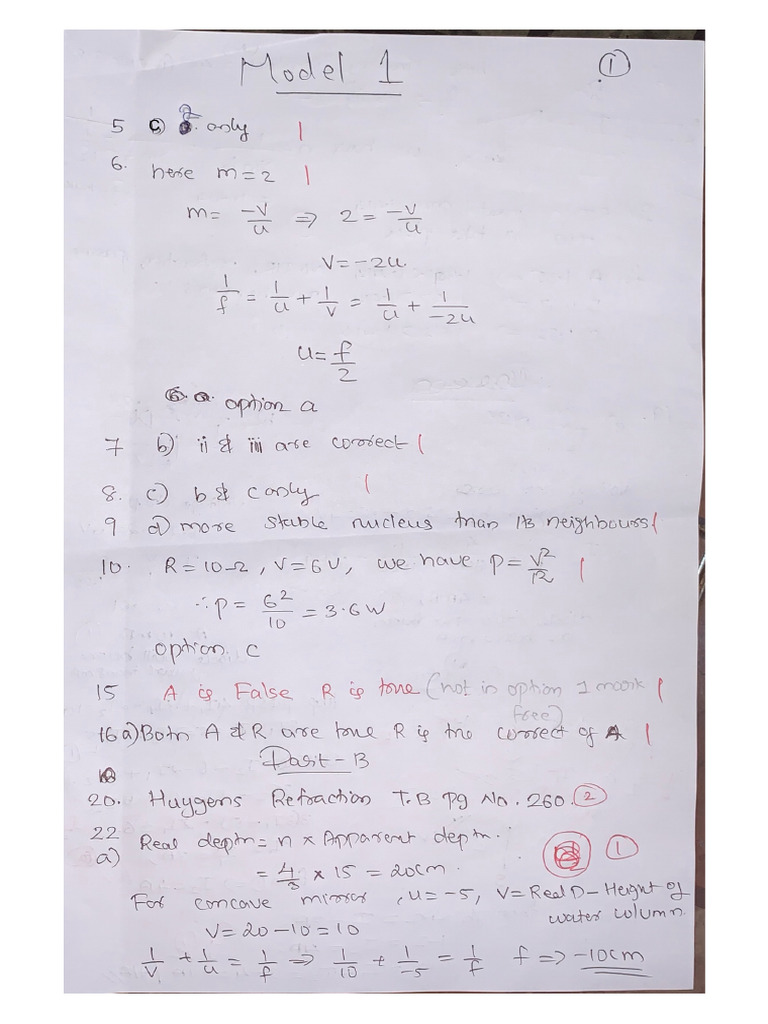 Model 1
1
5 c) 2. only 1
6. here m=2 1
m= -v/u ⇒ 2 = -v/u
v = -2u.
1/f = 1/u + 1/v = 1/u + 1/-2u
u = f/2
option a
7 b) ii & iii are correct 1
8. c) b & c only 1
9 d) more stable nucleus than its neighbours 1
10. R=10Ω, V=6V, we have P= V²/R 1
∴ P = 6²/10 = 3.6W
option c
15 A is False R is true (not in option 1 mark 1
free)
16 a) Both A & R are true R is the correct of A 1
Part - B
20. Huygens Refraction T.B Pg No. 260. 2
22
a) Real depth = n × Apparent depth.
= 4/3 × 15 = 20cm. 1
For concave mirror, u=-5, V= Real D - Height of
water column.
V= 20-10 = 10
1/v + 1/u = 1/f ⇒ 1/10 + 1/-5 = 1/f f => -10cm